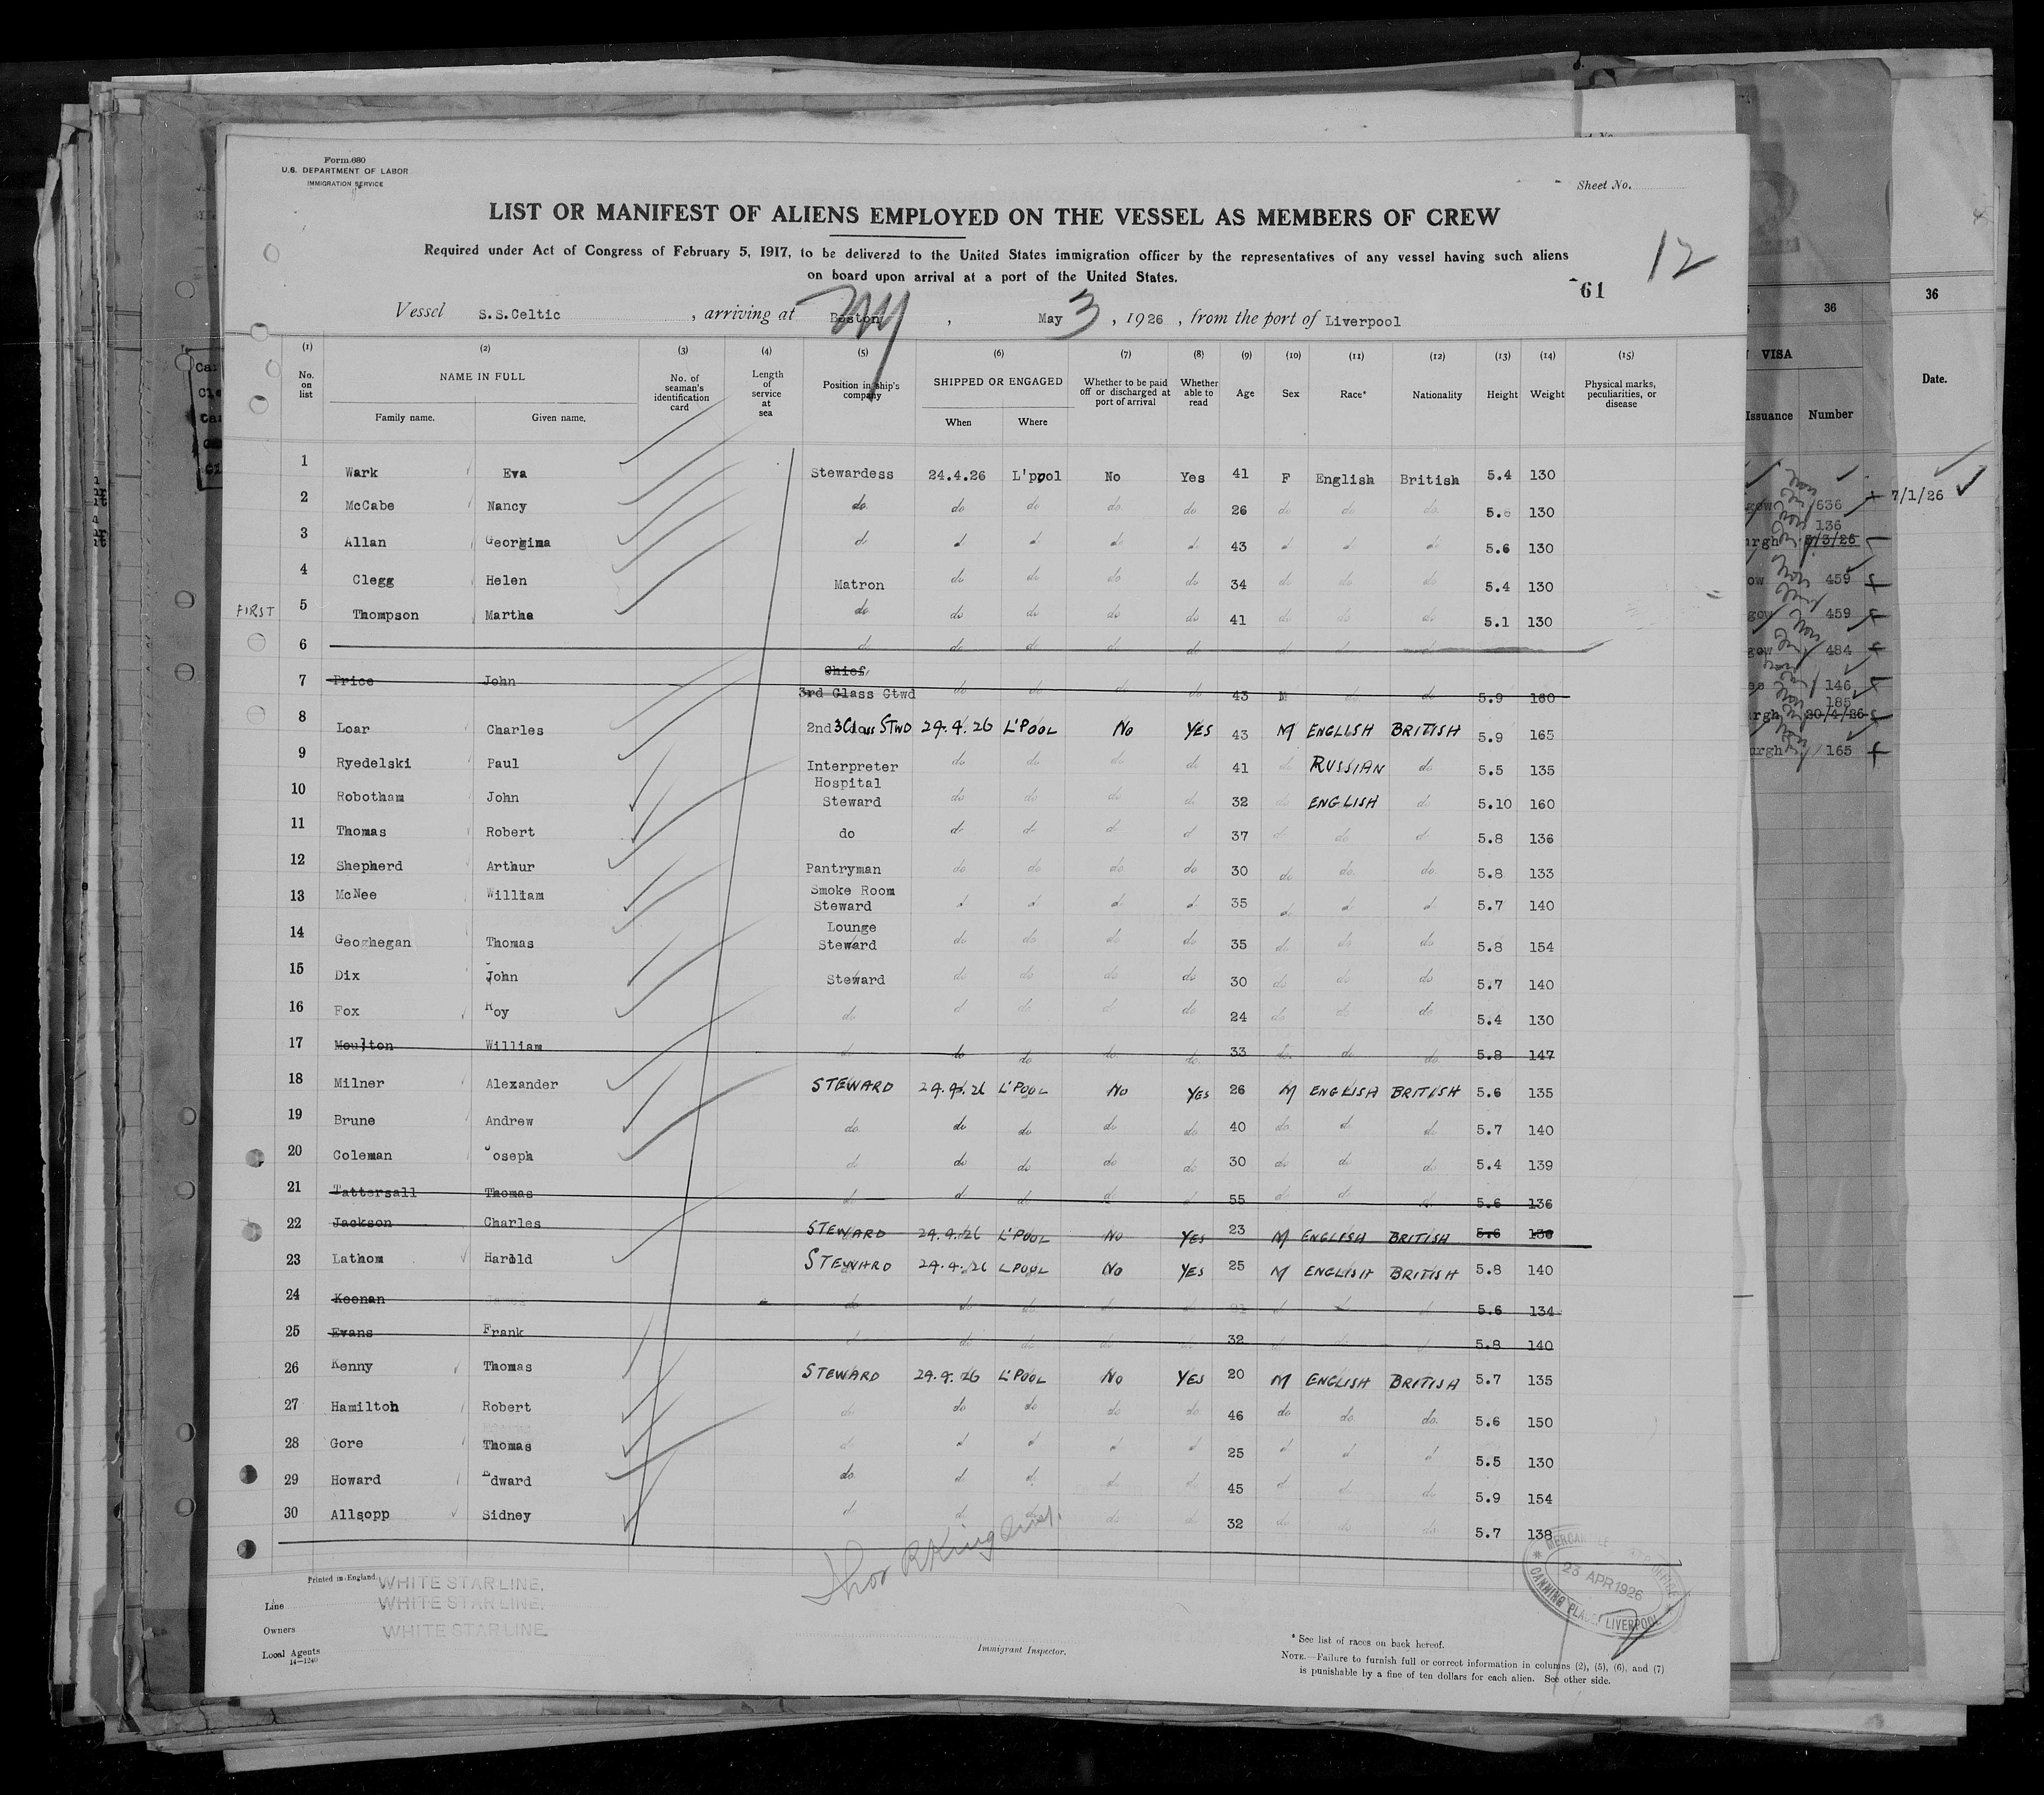 Form 680
U.S. DEPARTMENT OF LABOR
IMMIGRATION SERVICE
Sheet No.
LIST OR MANIFEST OF ALIENS EMPLOYED ON THE VESSEL AS MEMBERS OF CREW
Required under Act of Congress of February 5, 1917, to be delivered to the United States immigration officer by the representatives of any vessel having such aliens
on board upon arrival at a port of the United States.
12
61
Vessel S.S.Celtic, arriving at Boston NY, May 3, 1926, from the port of Liverpool
(1) (2) (3) (4) (5) (6) (7) (8) (9) (10) (11) (12) (13) (14) (15)
No. on list
NAME IN FULL
Family name. Given name.
No. of seaman's identification card
Length of service at sea
Position in ship's company
SHIPPED OR ENGAGED
When Where
Whether to be paid off or discharged at port of arrival
Whether able to read
Age Sex Race* Nationality Height Weight
Physical marks, peculiarities, or disease
1 Wark Eva Stewardess 24.4.26 L'pool No Yes 41 F English British 5.4 130
2 McCabe Nancy do do do do do 26 do do do 5.6 130
3 Allan Georgina d d d d d 43 d d d 5.6 130
4 Clegg Helen Matron do do do do 34 do do do 5.4 130
FIRST 5 Thompson Martha do do do do do 41 do do do 5.1 130
6 do do do do do do do do
7 Price John Chief 3rd Class Ctwd do do do do 43 M do do 5.9 160
8 Loar Charles 2nd 3Class STWD 24.4.26 L'POOL No YES 43 M ENGLISH BRITISH 5.9 165
9 Ryedelski Paul Interpreter do do do do 41 do RUSSIAN do 5.5 135
10 Robotham John Hospital Steward do do do do 32 do ENGLISH do 5.10 160
11 Thomas Robert do do do do d 37 d do d 5.8 136
12 Shepherd Arthur Pantryman do do do do 30 do do do 5.8 133
13 McNee William Smoke Room Steward d d d d 35 d d d 5.7 140
14 Geoghegan Thomas Lounge Steward do do do do 35 do do do 5.8 154
15 Dix John Steward do do do do 30 do do do 5.7 140
16 Fox Roy do d do do do 24 do do do 5.4 130
17 Moulton William d do do do do 33 do do do 5.8 147
18 Milner Alexander STEWARD 24.4.26 L'POOL No YES 26 M ENGLISH BRITISH 5.6 135
19 Brune Andrew do do do do do 40 do d d 5.7 140
20 Coleman Joseph do do do do do 30 do do do 5.4 139
21 Tattersall Thomas d d d d d 55 d d d 5.6 136
22 Jackson Charles STEWARD 24.4.26 L'POOL No YES 23 M ENGLISH BRITISH 5.6 136
23 Lathom Harold STEWARD 24.4.26 LPOOL No YES 25 M ENGLISH BRITISH 5.8 140
24 Keenan do do do d do d d d 5.6 134
25 Evans Frank d do do do do 32 d do d 5.8 140
26 Kenny Thomas STEWARD 24.4.26 L'POOL No YES 20 M ENGLISH BRITISH 5.7 135
27 Hamilton Robert do do do do do 46 do do do 5.6 150
28 Gore Thomas d d d d d 25 d d d 5.5 130
29 Howard Edward do d d d d 45 d do do 5.9 154
30 Allsopp Sidney d d do do do 32 do do do 5.7 138
Printed in England.
Line WHITE STAR LINE.
Owners WHITE STAR LINE.
Local Agents WHITE STAR LINE.
14—1240
Immigrant Inspector.
23 APR 1926
CANNING PLACE LIVERPOOL
* See list of races on back hereof.
NOTE.—Failure to furnish full or correct information in columns (2), (5), (6), and (7)
is punishable by a fine of ten dollars for each alien. See other side.
36
36
VISA
Date.
Issuance Number
636
7/1/26
136
3/3/26
459
459
484
146
185
20/4/26
165